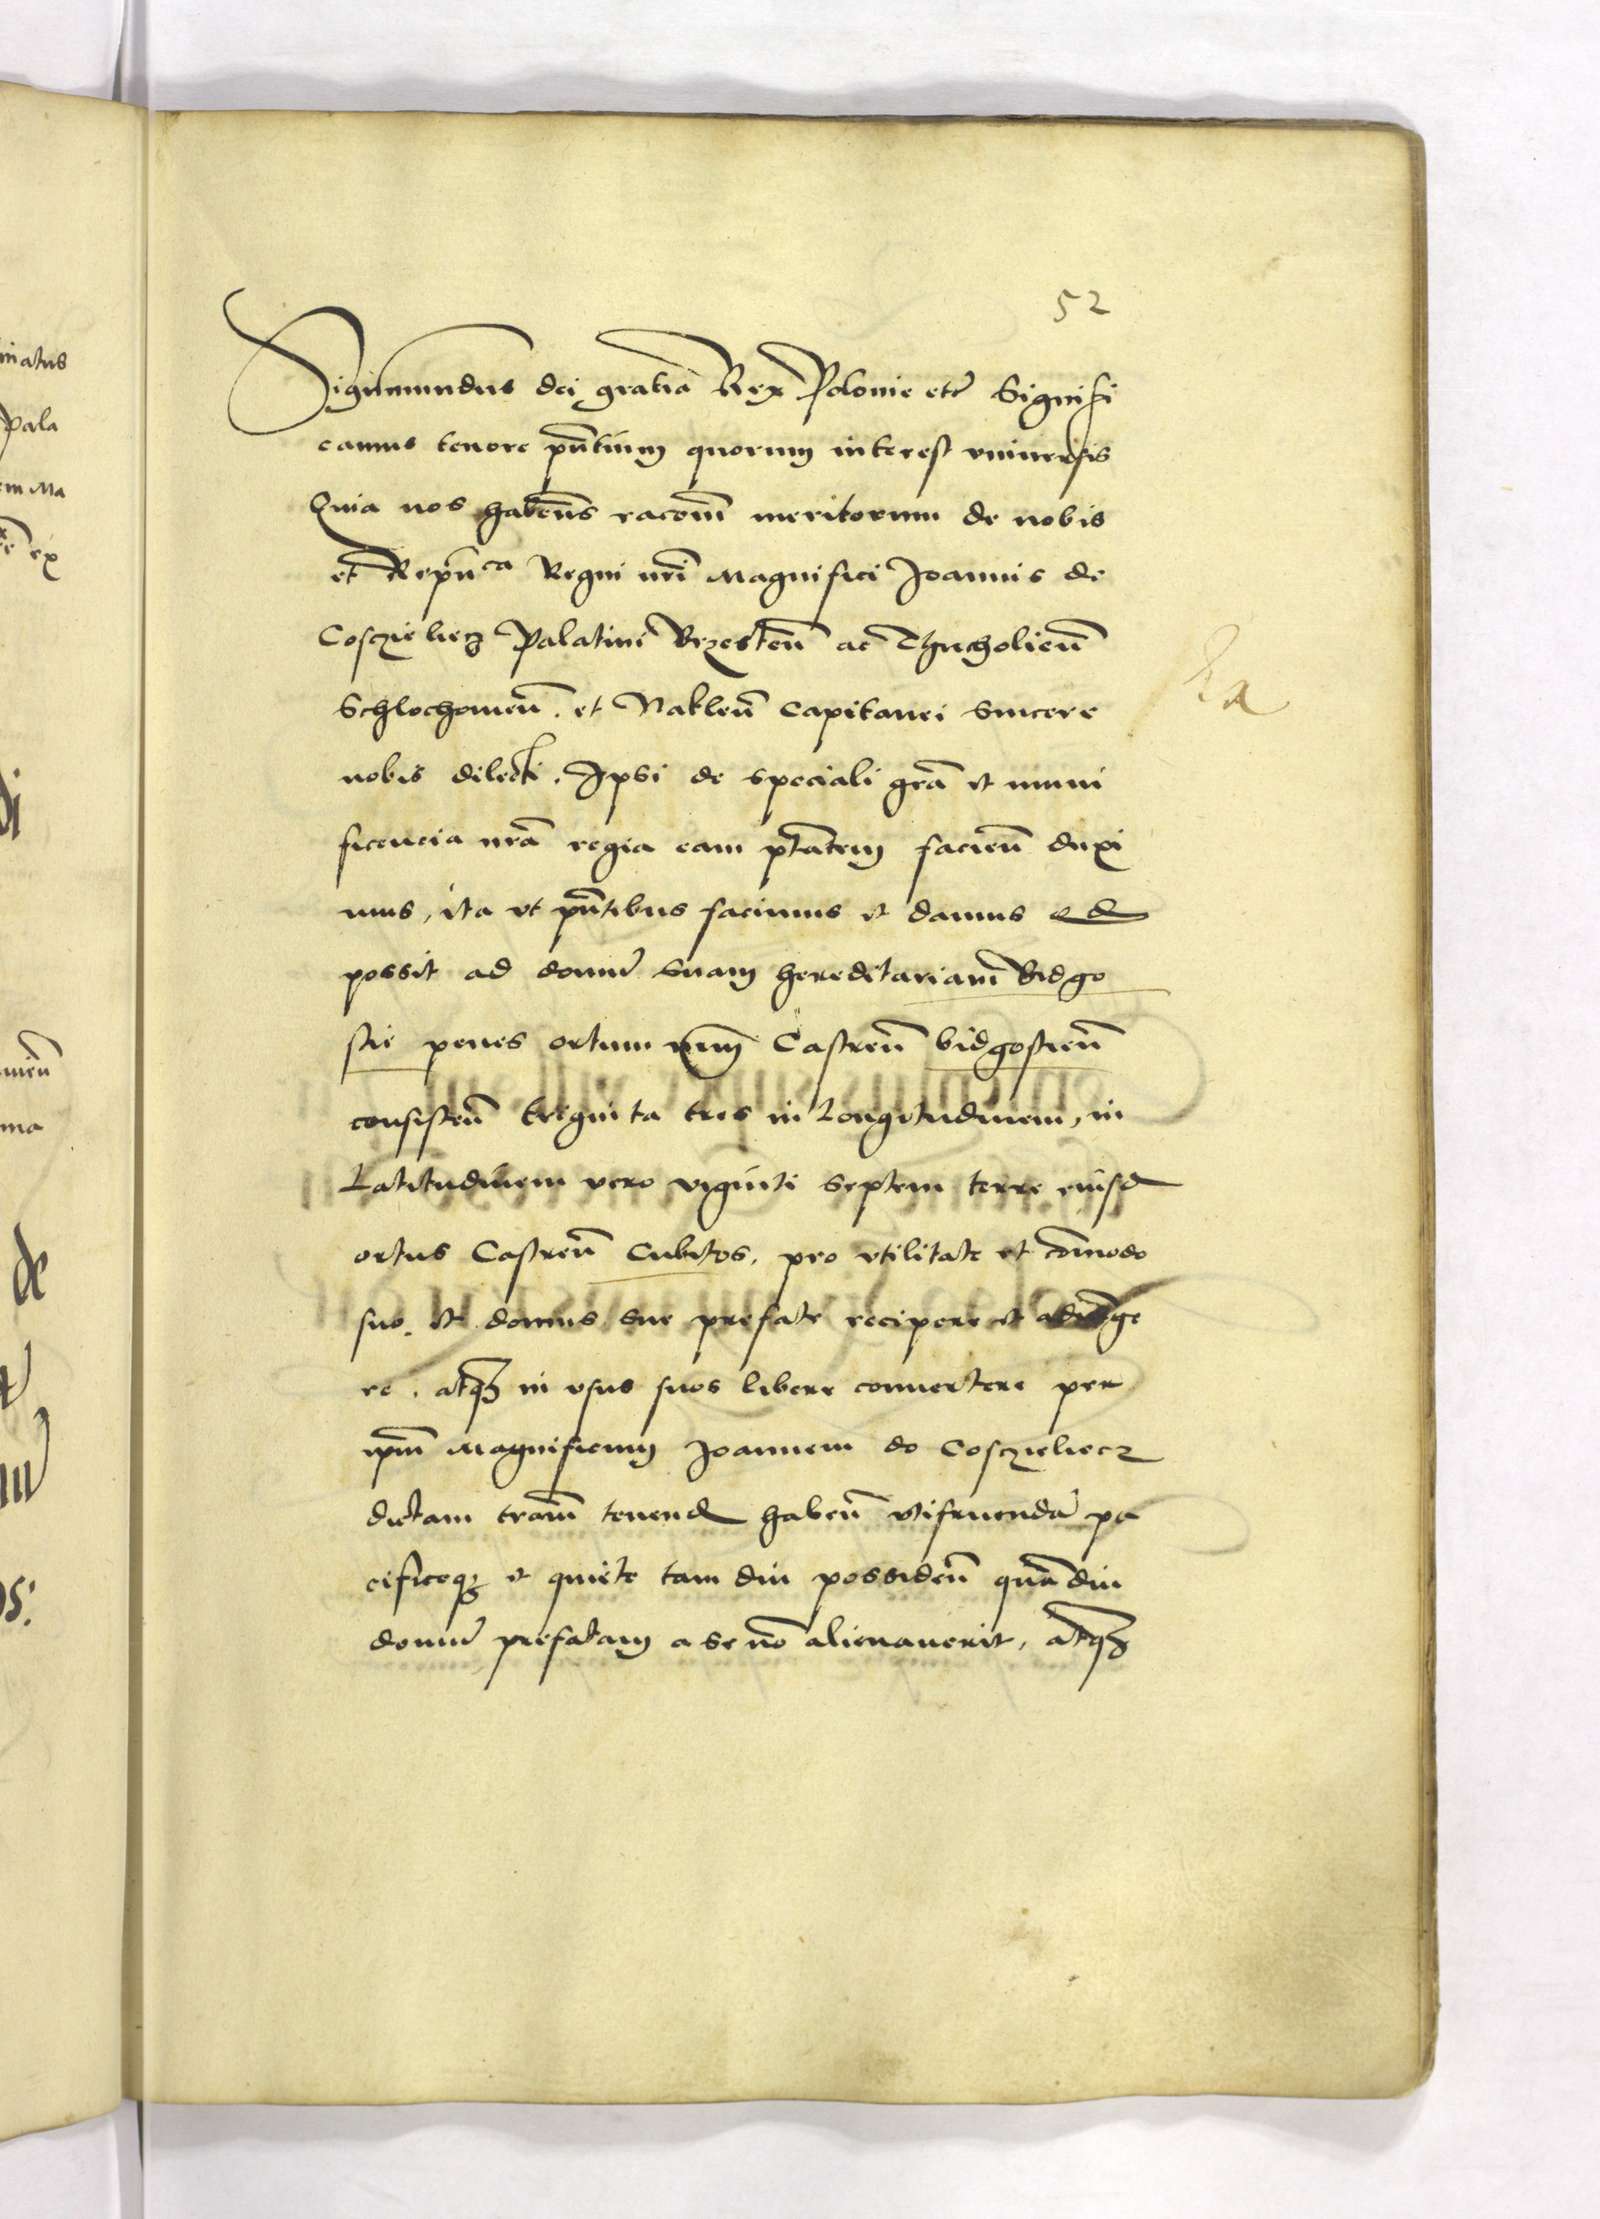 52
Sigismundus dei gratia Rex Polonie etc̃ Signifi
camus tenore pñtium quorum interest vniuersis
Quia nos habeñs racoem̃ meritorum de nobis
et Repuᶜᵃ Regni nr̃i Magnifici Joannis de
Cosczieliecz Palatini Brzesteñ ac Thucholieñ
Schlochouieñ. et Nakleñ Capitanei Sincere
nobis dilecti. Ipsi de speciali grã et muni
ficencia nrã regia eam ptãtem facieñ duxi
mus, ita vt pñtibus facimus et damus
possit ad domũ suam hereditariam̃ Bidgo
stie penes ortum Castreñ bidgostieñ
consisteñ triginta tres in Longitudinem, in
Latitudinem vero viginti septem terre eiusd
ortus Castreñ Cubitos, pro vtilitate et com̃odo
suo. et domus sue prefate recipere et adiũge
re. atqȝ in vsus suos libere conuertere per
ipm̃ Magnificum Joannem de Cosczieliecz
dictam terram̃ tenend habeñ vtifruendã pa
cificeqȝ et quiete tam diu possideñ quãdiu
domũ prefatam a se nõ alienauerit, atqȝ
matus
Pala
em Ma
ex
di
ma
de
os: